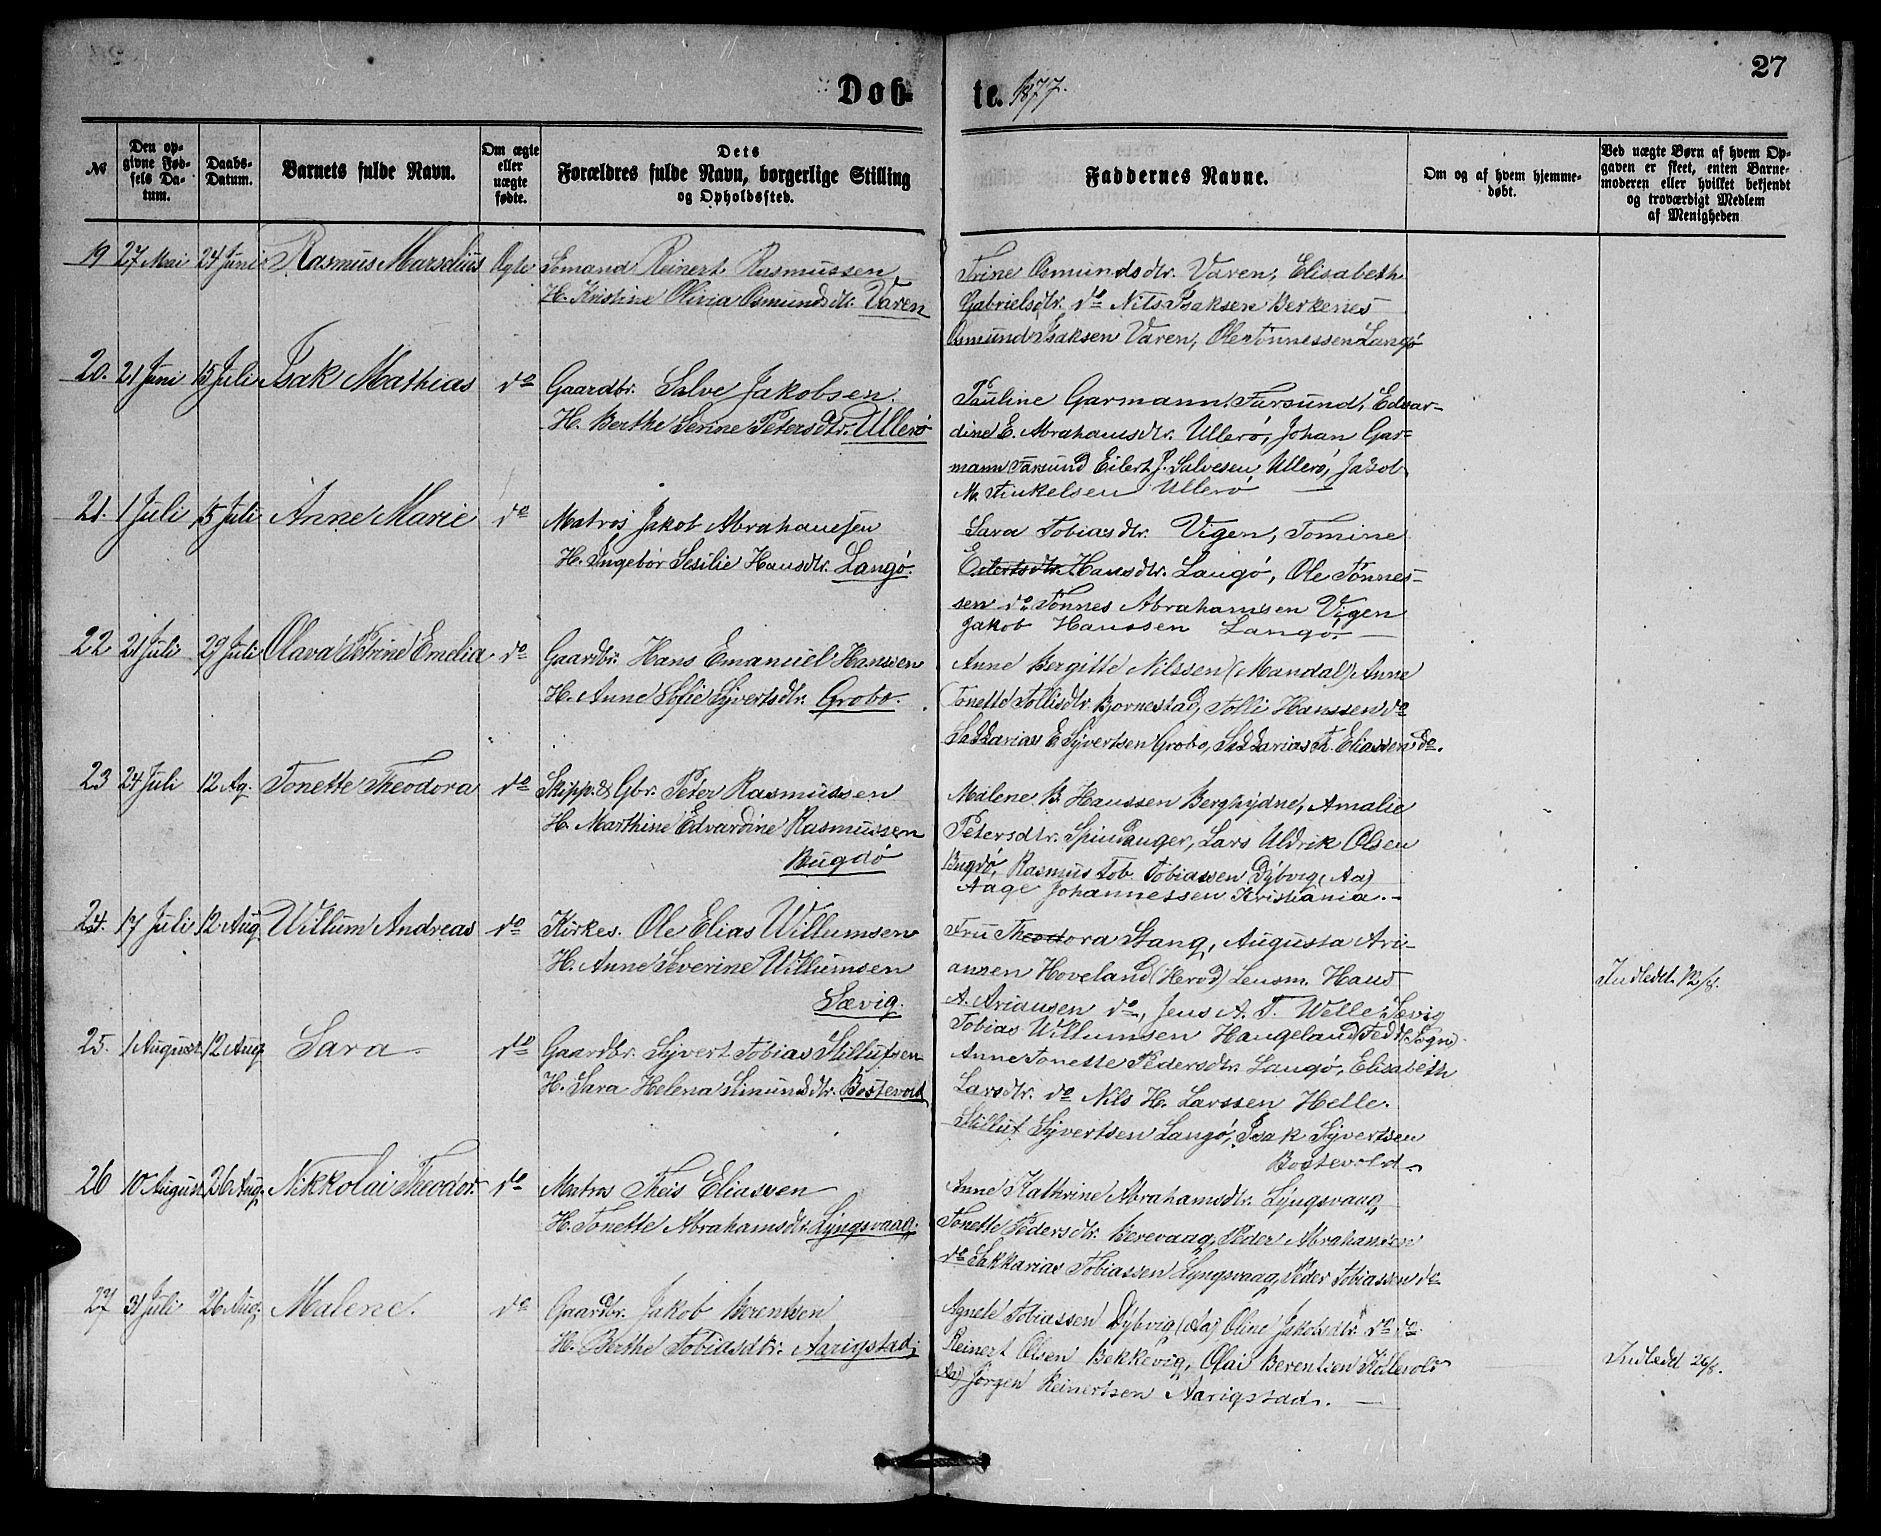 27
Døb-te. 1877.
№
Den op-
givne Fød-
sels Da-
tum.
Daabs-
Datum.
Barnets fulde Navn.
Om ægte
eller
uægte
fødte.
Dets
Forældres fulde Navn, borgerlige Stilling
og Opholdssted.
Faddernes Navne.
Om og af hvem hjemme-
døbt.
Ved uægte Børn af hvem Op-
gaven er skeet, enten Barne-
moderen eller hvilket bekjendt
og troværdigt Medlem
af Menigheden
19 27 Mai 24 Juni Rasmus Marselius Ægte Sømand Reinert Rasmussen
H. Kristine Olivia Osmundsdtr. Varen
Trine Osmundsdtr. Varen, Elisabeth
Gabrielsdtr. do Nils Isaksen Berkenes
Osmund Isaksen Varen, Ole Tønnessen Langø
20. 21 Juni 15 Juli Isak Mathias do Gaardbr. Salve Jakobsen.
H. Berthe Serine Petersdtr. Ullerø
Pauline Garmann, Farsund, Edvar-
dine E. Abrahamsdtr. Ullerø, Johan Gar-
mann Farsund Eilert J. Salvesen Ullerø, Jakob
M. Tinkelsen Ullerø
21. 1 Juli 15 Juli Anne Marie do Matros Jakob Abrahamsen
H. Ingebor Sesilie Hansdtr. Langø.
Sara Tobiasdtr. Vigen, Tomine
Eilertsdtr. Hansdtr. Langø, Ole Tønnes-
sen do Tønnes Abrahamsen Vigen
Jakob Hanssen Langø.
22 21 Juli 29 Juli Olava Petrine Emelia do Gaardbr. Hans Emanuel Hansen
H. Anne Sofie Syvertsdtr. Grobo.
Anne Bergitte Nilssen (Mandal) Anne
Tonette Tollisdtr. Bjørnestad, Tolli Hanssen do
Sakkarias E Syvertsen Grobo, Sakkarias T. Eliassen do.
23 24 Juli 12 Ag. Tonette Theodora do Skipp. & Gbr. Peter Rasmussen
H. Marthine Edvardine Rasmussen
Bugdø
Malene B. Hanssen Berghydne, Amalie
Petersdtr. Spindanger, Lars Uldrik Olsen
Bugdø, Rasmus Tob. Tobiassen Dybvig, (Aa)
Aage Johannessen Kristiania.
24. 17 Juli 12 Aug Willum Andreas do Kirkes. Ole Elias Willumsen
H. Anne Severine Willumsen
Sævig.
Fru Theodora Stang, Augusta Ari-
ansen Hoveland (Herød) Lensm. Hans
A. Ariansen do, Jens A. T. Welle Sævig
Tobias Willumsen Haugeland Fedde Sogn)
Indledd. 12/8.
25. 1 August 12 Aug Sara do Gaardbr. Syvert Tobias Stillufsen
H. Sara Helena Simundsdtr. Bostevold
Anne Tonette Pedersdtr. Langø, Elisabeth
Larsdtr. do Nils H. Larssen Helle.
Stilluf Syvertsen Langø, Isak Syvertsen
Bostevold
26 10 August 26 Aug. Nikkolai Theodor. do Matros Theis Eliassen
H. Tonette Abrahamsdtr. Lyngsvaag.
Anne Kathrine Abrahamsdtr. Lyngsvaag
Tonette Pedersdtr. Berevaag, Peder Abrahamsen
do Sakkarias Tobiassen Lyngsvaag, Peder Tobiassen do
27 31 Juli 26 Aug. Malene. do Gaardbr. Jakob Berentsen
H. Berthe Tobiasdtr. Aarigstad
Agnete Tobiassen Dybvig (Aa) Oline Jakobsdtr. do do
Reinert Olsen Bekkevig, Olai Berentsen Kollevold
(Aa) Jørgen Reinertsen Aarigstad.
Indledd 26/8.